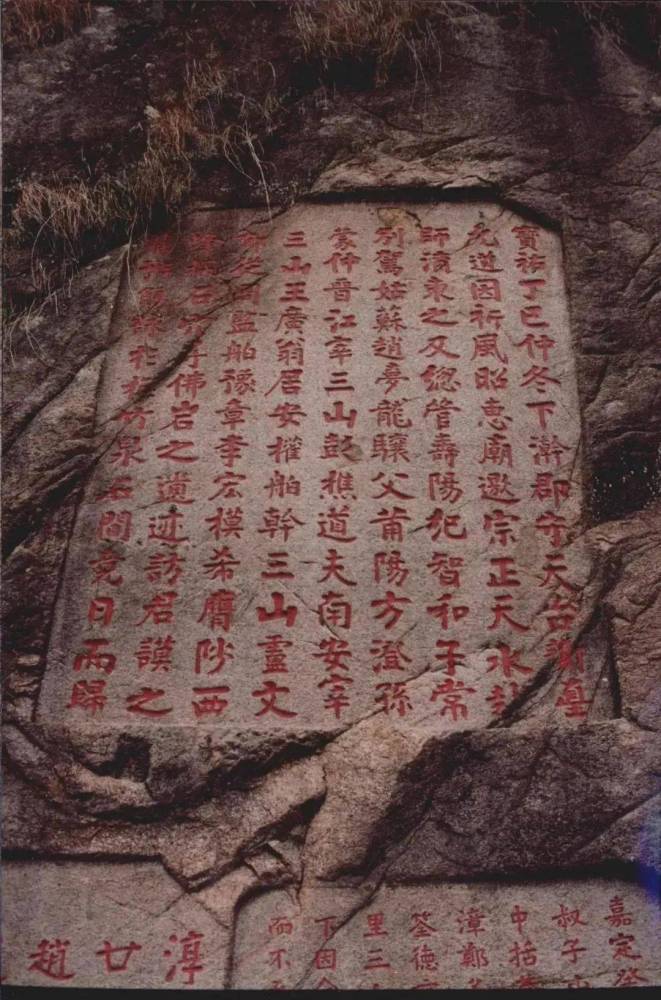 寶祐丁巳仲冬下澣郡守天台謝
允道因祈風昭惠廟邀宗正天水趙
師清東之又總管壽陽紀智和子常
別駕姑蘇趙夢龍驤父莆陽方澄孫
蒙仲晉江宰三山彭樵道夫南安宰
三山王廣翁居安權舶幹三山靈文
從周監舶豫章李宏模希膺陟西
佛岩之遺迹訪君謨之
竹泉石間竟日而歸
嘉定癸
叔子
中括
漳鄭
筌德
里三
下因
而不
淳
廿
趙